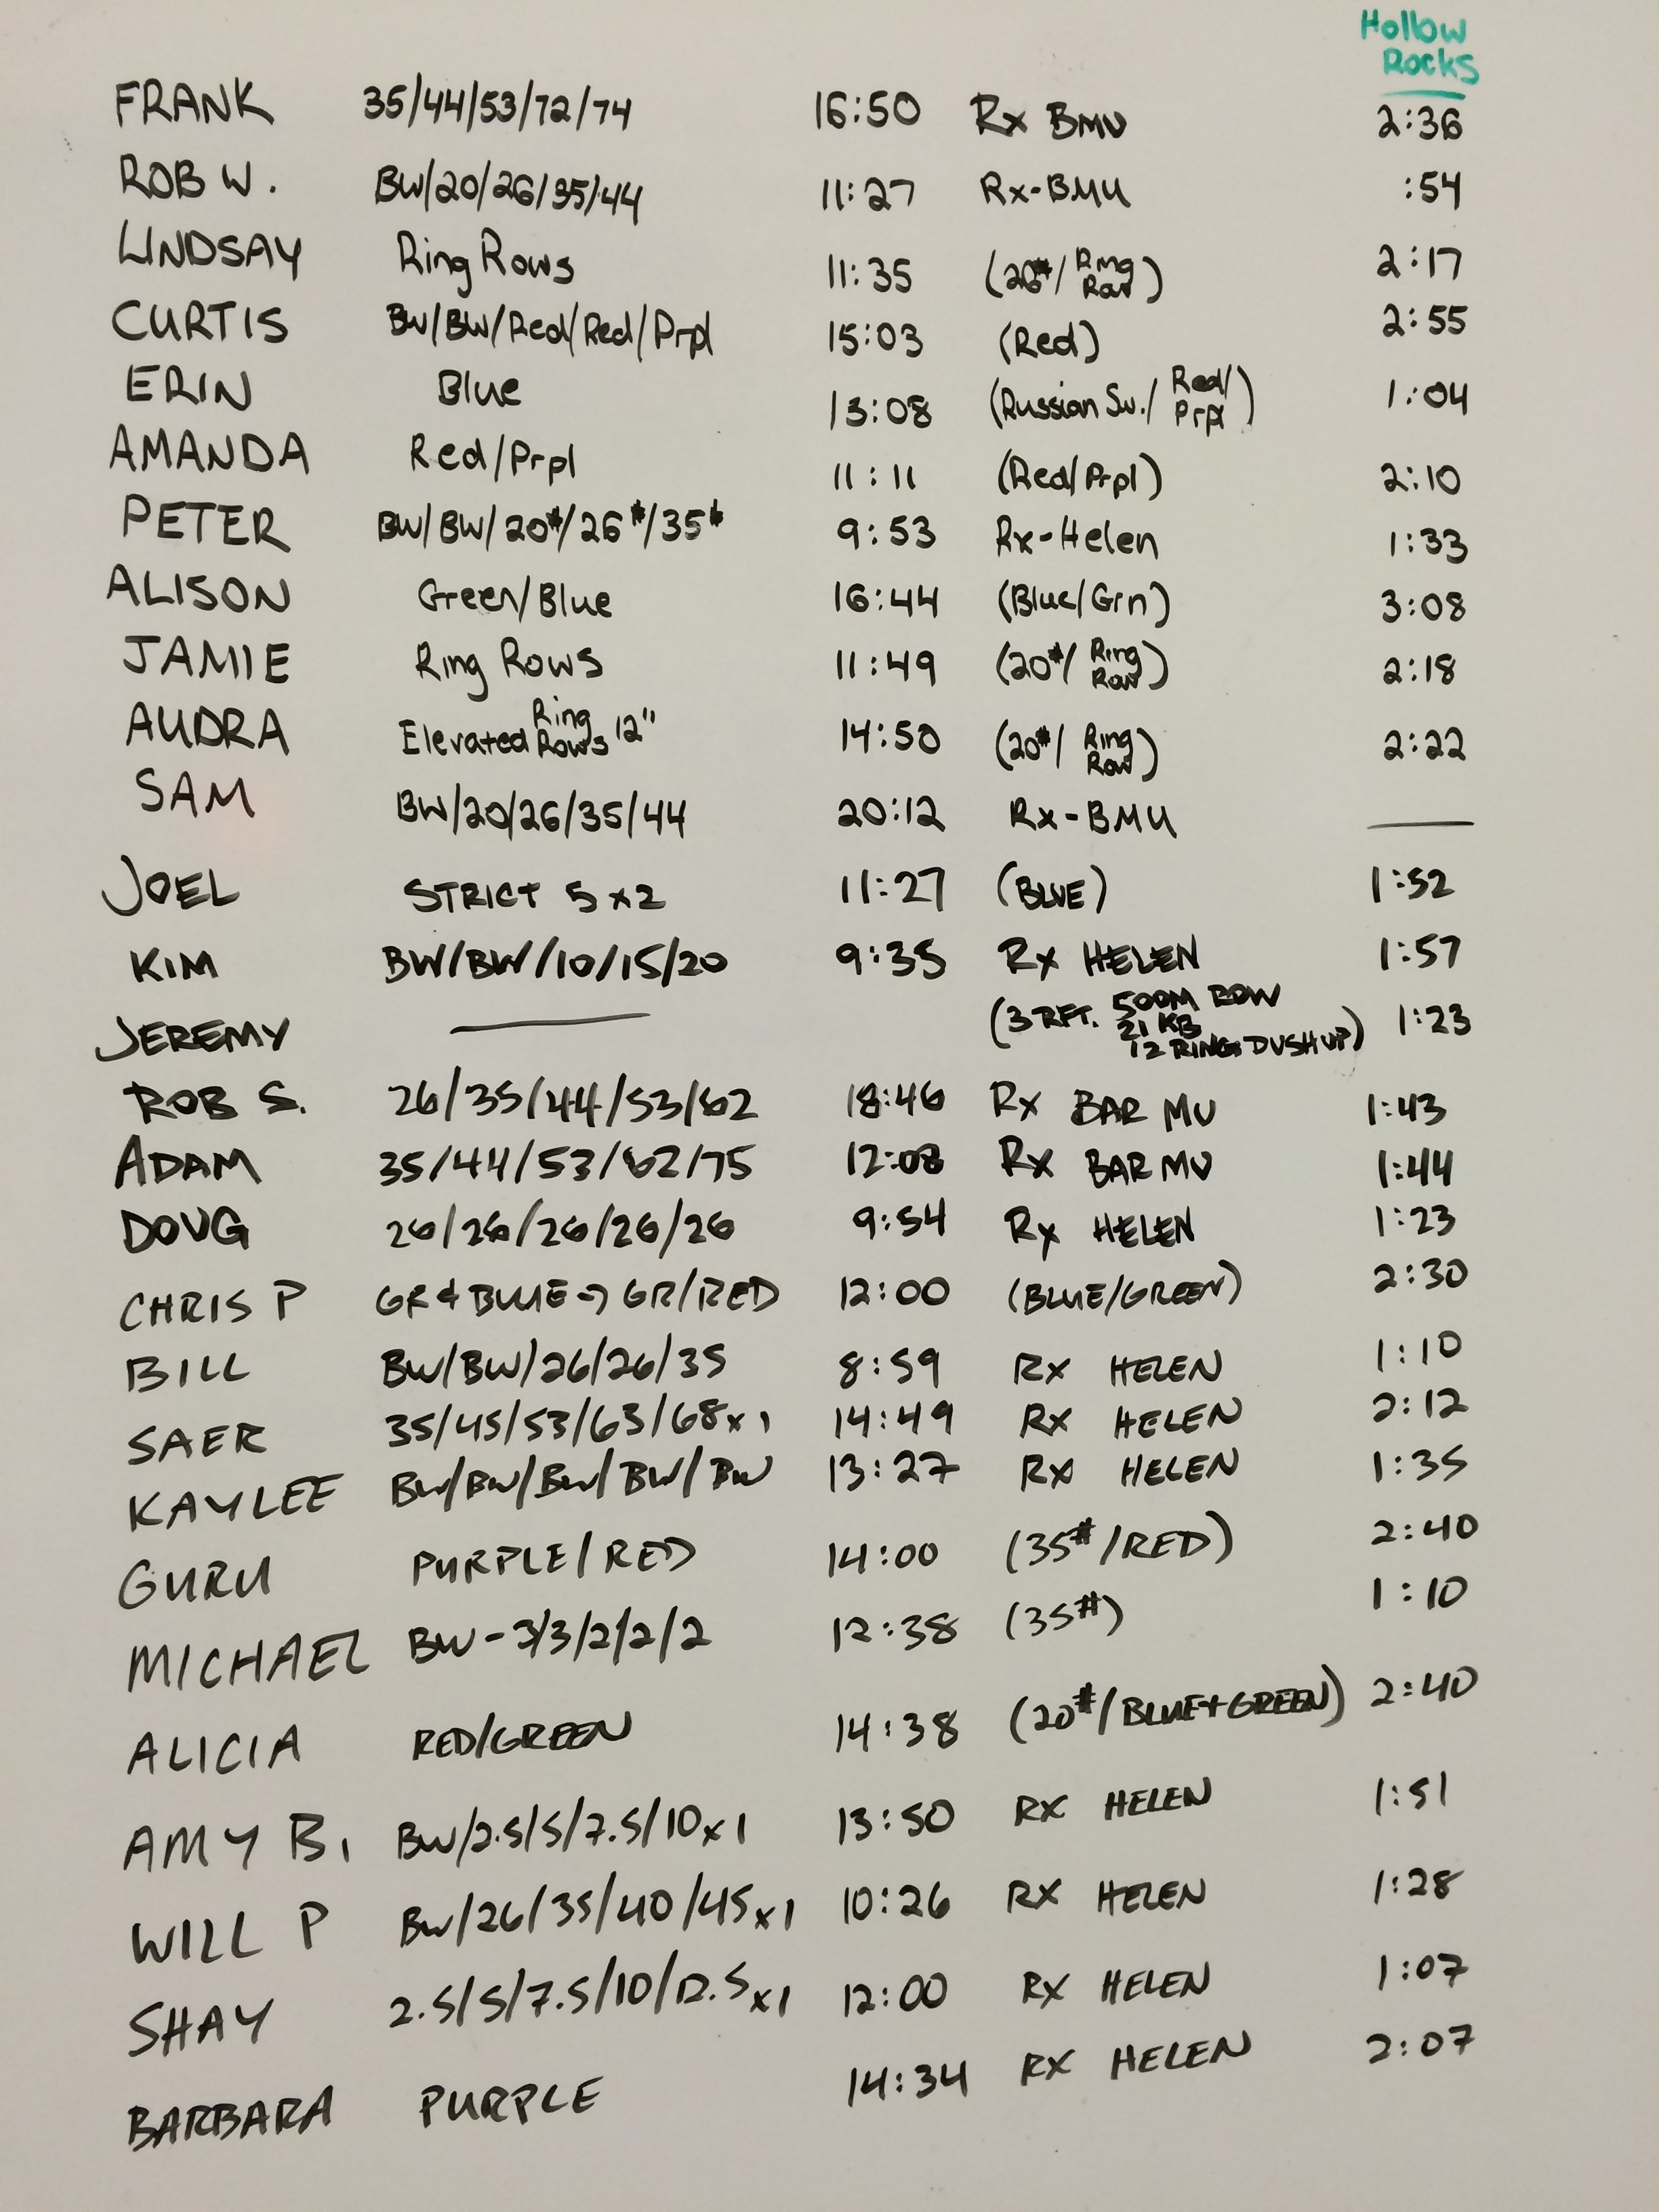 Hollow
Rocks
FRANK 35/44/53/72/74 16:50 Rx BMU 2:36
ROB W. BW/20/26/35/44 11:27 Rx-BMU :54
LINDSAY Ring Rows 11:35 (20#/ Ring Row) 2:17
CURTIS BW/BW/Red/Red/Prpl 15:03 (Red) 2:55
ERIN Blue 13:08 (Russian Sw./ Red/ Prpl) 1:04
AMANDA Red/Prpl 11:11 (Red/Prpl) 2:10
PETER BW/BW/20#/26#/35# 9:53 Rx-Helen 1:33
ALISON Green/Blue 16:44 (Blue/Grn) 3:08
JAMIE Ring Rows 11:49 (20#/ Ring Row) 2:18
AUDRA Elevated Ring Rows 12" 14:50 (20#/ Ring Row) 2:22
SAM BW/20/26/35/44 20:12 Rx-BMU —
JOEL STRICT 5x2 11:27 (BLUE) 1:52
KIM BW/BW/10/15/20 9:35 Rx HELEN 1:57
JEREMY — (3 RFT. 500M ROW 21 KB 12 RING PUSHUP) 1:23
ROB S. 26/35/44/53/62 18:46 Rx BAR MU 1:43
ADAM 35/44/53/62/75 12:08 Rx BAR MU 1:44
DOUG 26/26/26/26/26 9:54 Rx HELEN 1:23
CHRIS P GR & BLUE → GR/RED 12:00 (BLUE/GREEN) 2:30
BILL BW/BW/26/26/35 8:59 RX HELEN 1:10
SAER 35/45/53/63/68x1 14:49 RX HELEN 2:12
KAYLEE BW/BW/BW/BW/BW 13:27 RX HELEN 1:35
GURU PURPLE/RED 14:00 (35#/RED) 2:40
MICHAEL BW-3/3/2/2/2 12:38 (35#) 1:10
ALICIA RED/GREEN 14:38 (20#/BLUE+GREEN) 2:40
AMY B. BW/2.5/5/7.5/10x1 13:50 RX HELEN 1:51
WILL P BW/26/35/40/45x1 10:26 RX HELEN 1:28
SHAY 2.5/5/7.5/10/12.5x1 12:00 RX HELEN 1:07
BARBARA PURPLE 14:34 RX HELEN 2:07